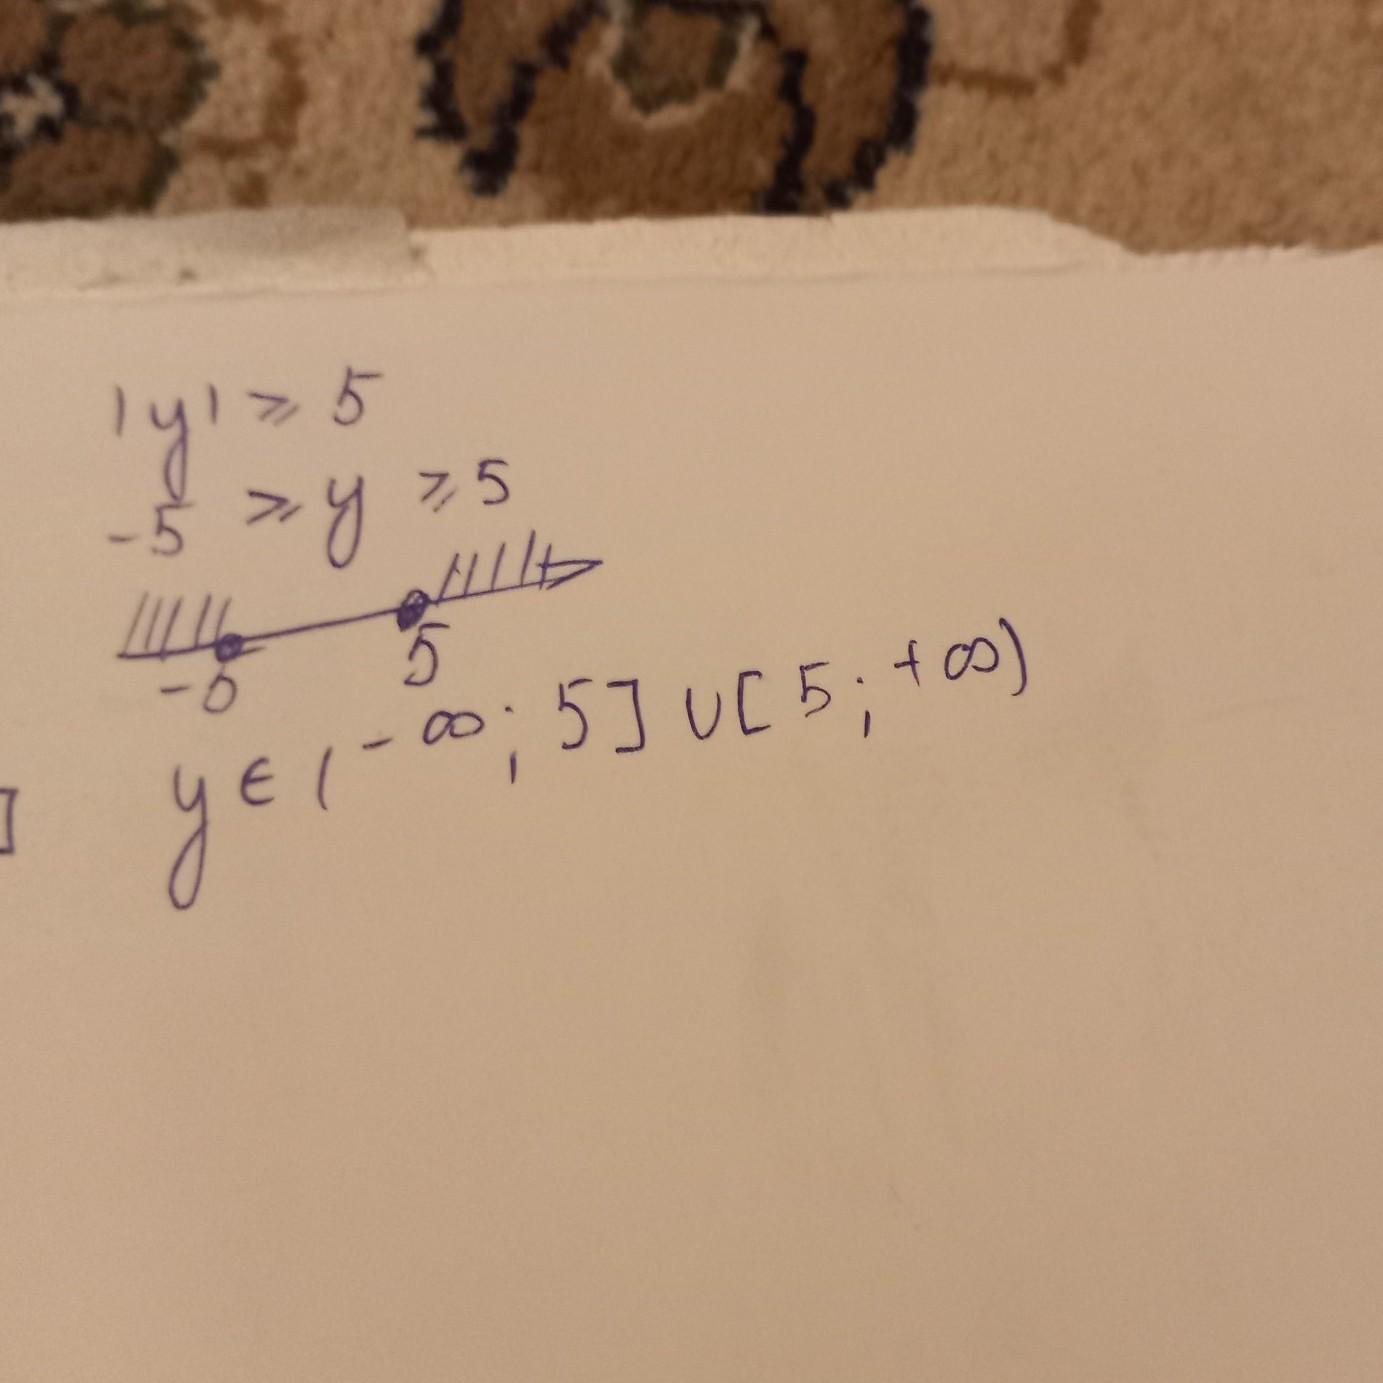 |y| ⩾ 5
-5 ⩾ y ⩾ 5
-5 5
y ∈ (-∞; 5] ∪ [5; +∞)
]